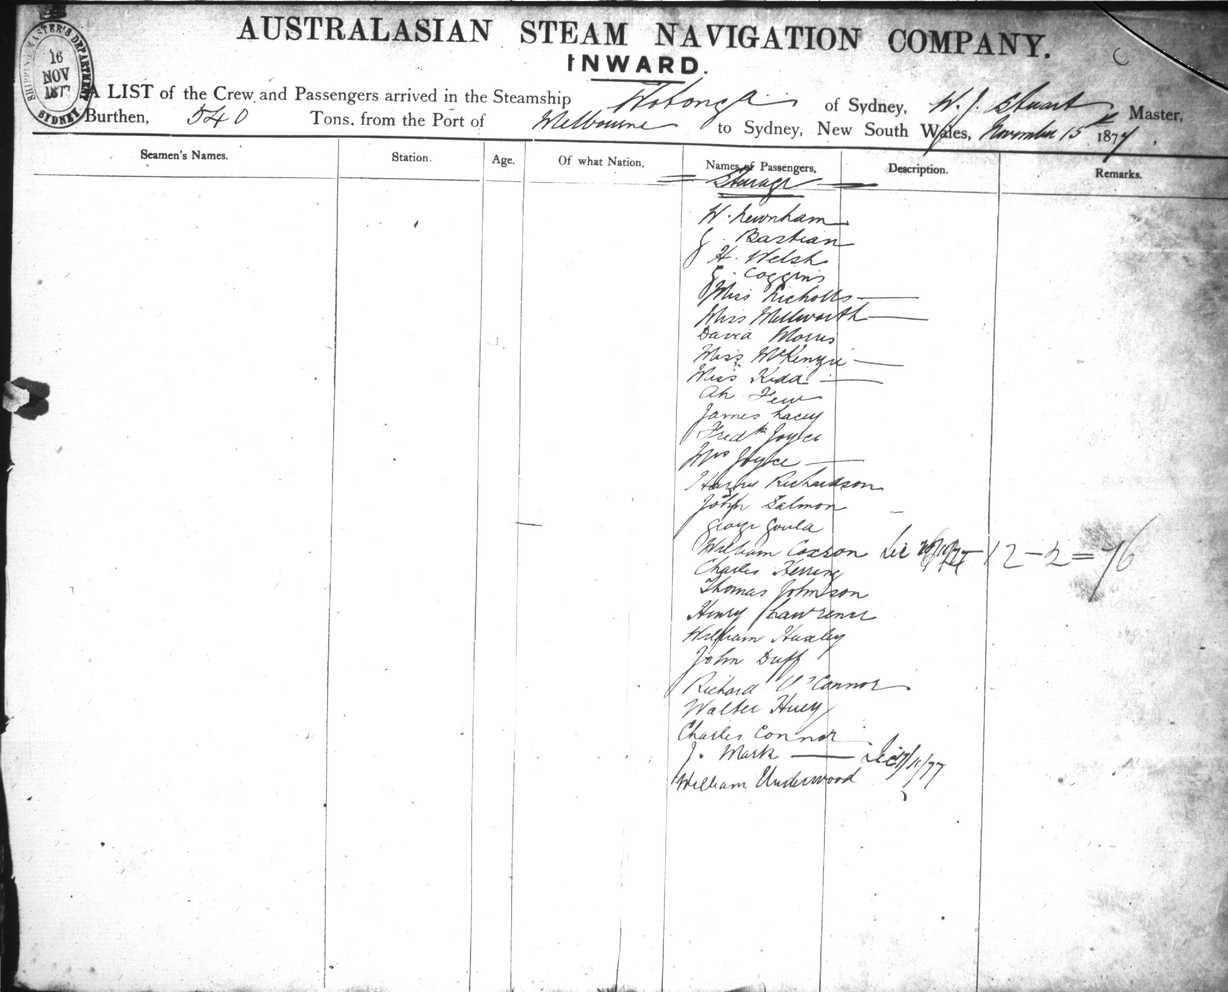 AUSTRALASIAN STEAM NAVIGATION COMPANY.
INWARD.
SHIPPING MASTER'S DEPARTMENT
16
NOV
1877
SYDNEY
A LIST of the Crew and Passengers arrived in the Steamship Wotonga of Sydney, W. J. Stuart Master,
Burthen, 540 Tons, from the Port of Melbourne to Sydney, New South Wales, November 15th 1877.
Seamen's Names. Station. Age. Of what Nation. Names of Passengers, Description. Remarks.
Steerage
W. Lewnham
J. Bastian
H. Welsh
G. Coggins
Miss Nicholls
Miss Millworth
David Morris
Miss McKenzie
Miss Kidd
Ah Few
James Lacey
Fredk Joyce
Mrs Joyce
Richardson
John Salmon
George Gould
William Coxson 12-2=76
Charles Herring
Thomas Johnson
Henry Lawrence
William Huxley
John Duff
Richard O'Connor
Walter Huey
Charles Connor
J. Mark /11/77
William Underwood